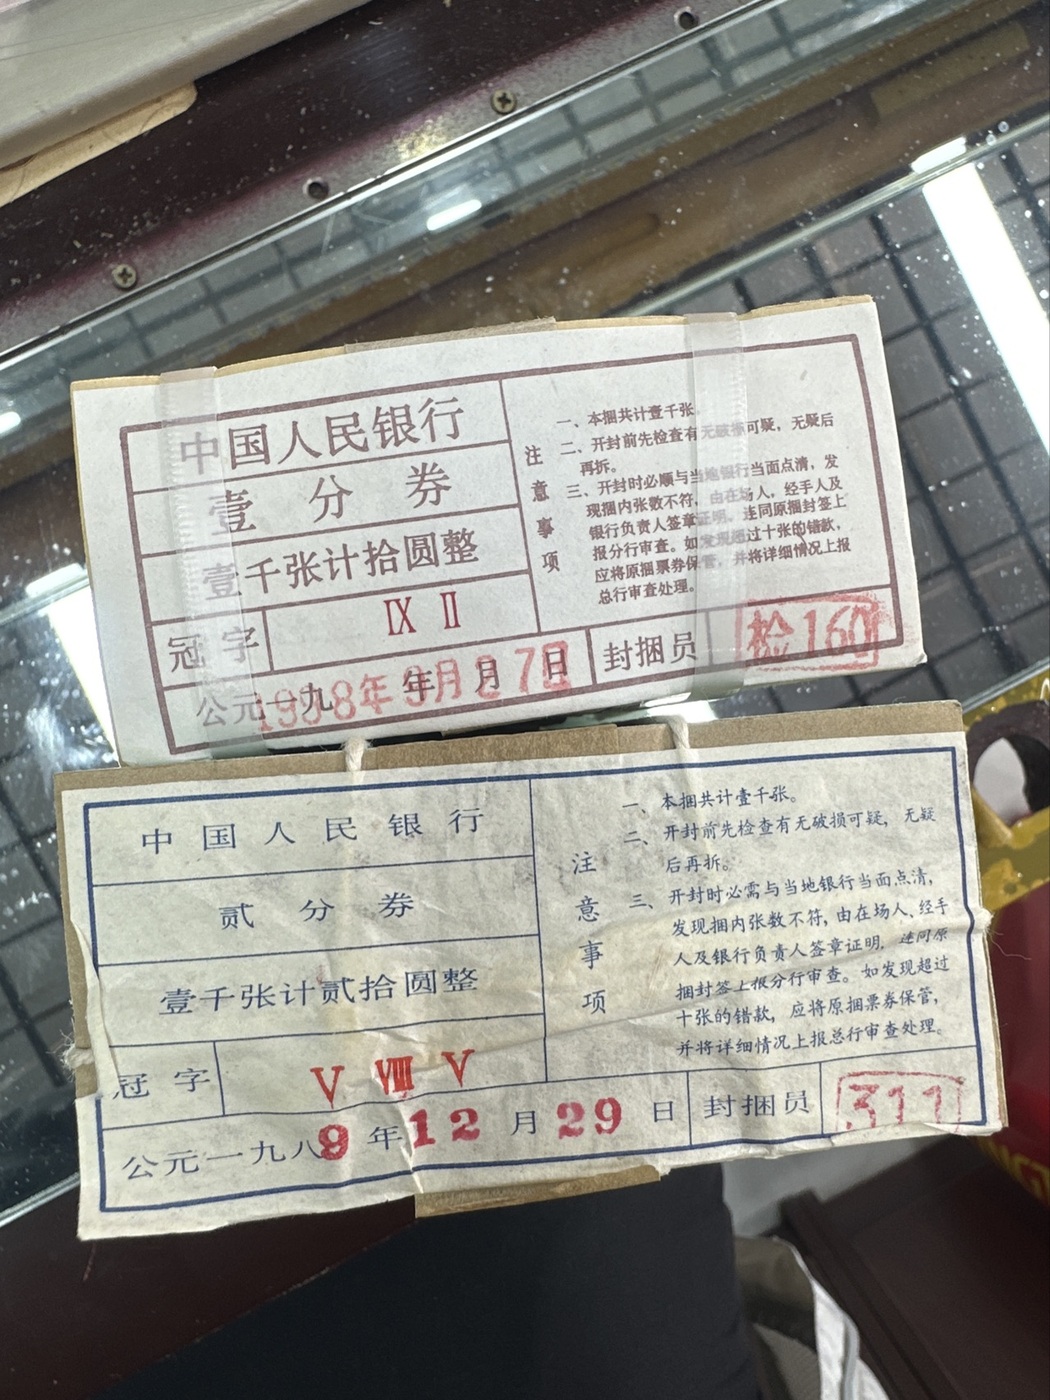 中国人民银行
壹分券
壹千张计拾圆整
冠字 IX II
公元一九 年 月 日
1998年9月27日
封捆员
检160
注意事项
一、本捆共计壹千张。
二、开封前先检查有无破损可疑，无疑后
再拆。
三、开封时必顺与当地银行当面点清，发
现捆内张数不符，由在场人，经手人及
银行负责人签章证明，连同原捆封签上
报分行审查。如发现超过十张的错款，
应将原捆票券保管，并将详细情况上报
总行审查处理。
中国人民银行
贰分券
壹千张计贰拾圆整
冠字 V VIII V
公元一九八9年12月29日
封捆员
311
注意事项
一、本捆共计壹千张。
二、开封前先检查有无破损可疑，无疑
后再拆。
三、开封时必需与当地银行当面点清，
发现捆内张数不符，由在场人、经手
人及银行负责人签章证明，连同原
捆封签上报分行审查。如发现超过
十张的错款，应将原捆票券保管，
并将详细情况上报总行审查处理。